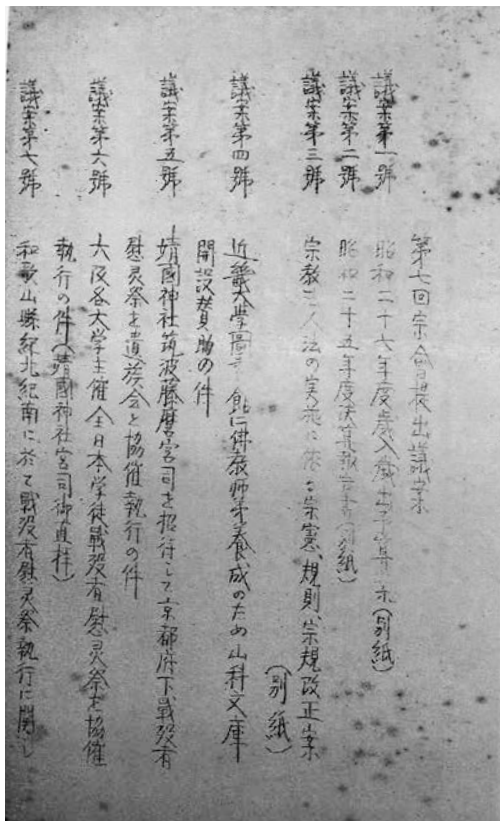 第七回宗会提出議案
議案第一號 昭和二十七年度歳入歳出予算案(別紙)
議案第二號 昭和二十五年度決算報告書(別紙)
議案第三號 宗教法人法の実施に依る宗憲、規則、宗規改正案
(別紙)
議案第四號 近畿大學圖書館に佛教師弟養成のため山科文庫
開設賛助の件
議案第五號 靖國神社筑波藤麿宮司を招待して京都府下戦没者
慰灵祭を遺族会と協催執行の件
議案第六號 大阪各大学主催全日本学徒戦没者慰灵祭を協催
執行の件(靖國神社宮司御直拝)
議案第七號 和歌山縣紀北紀南に於て戦没者慰灵祭執行に関し